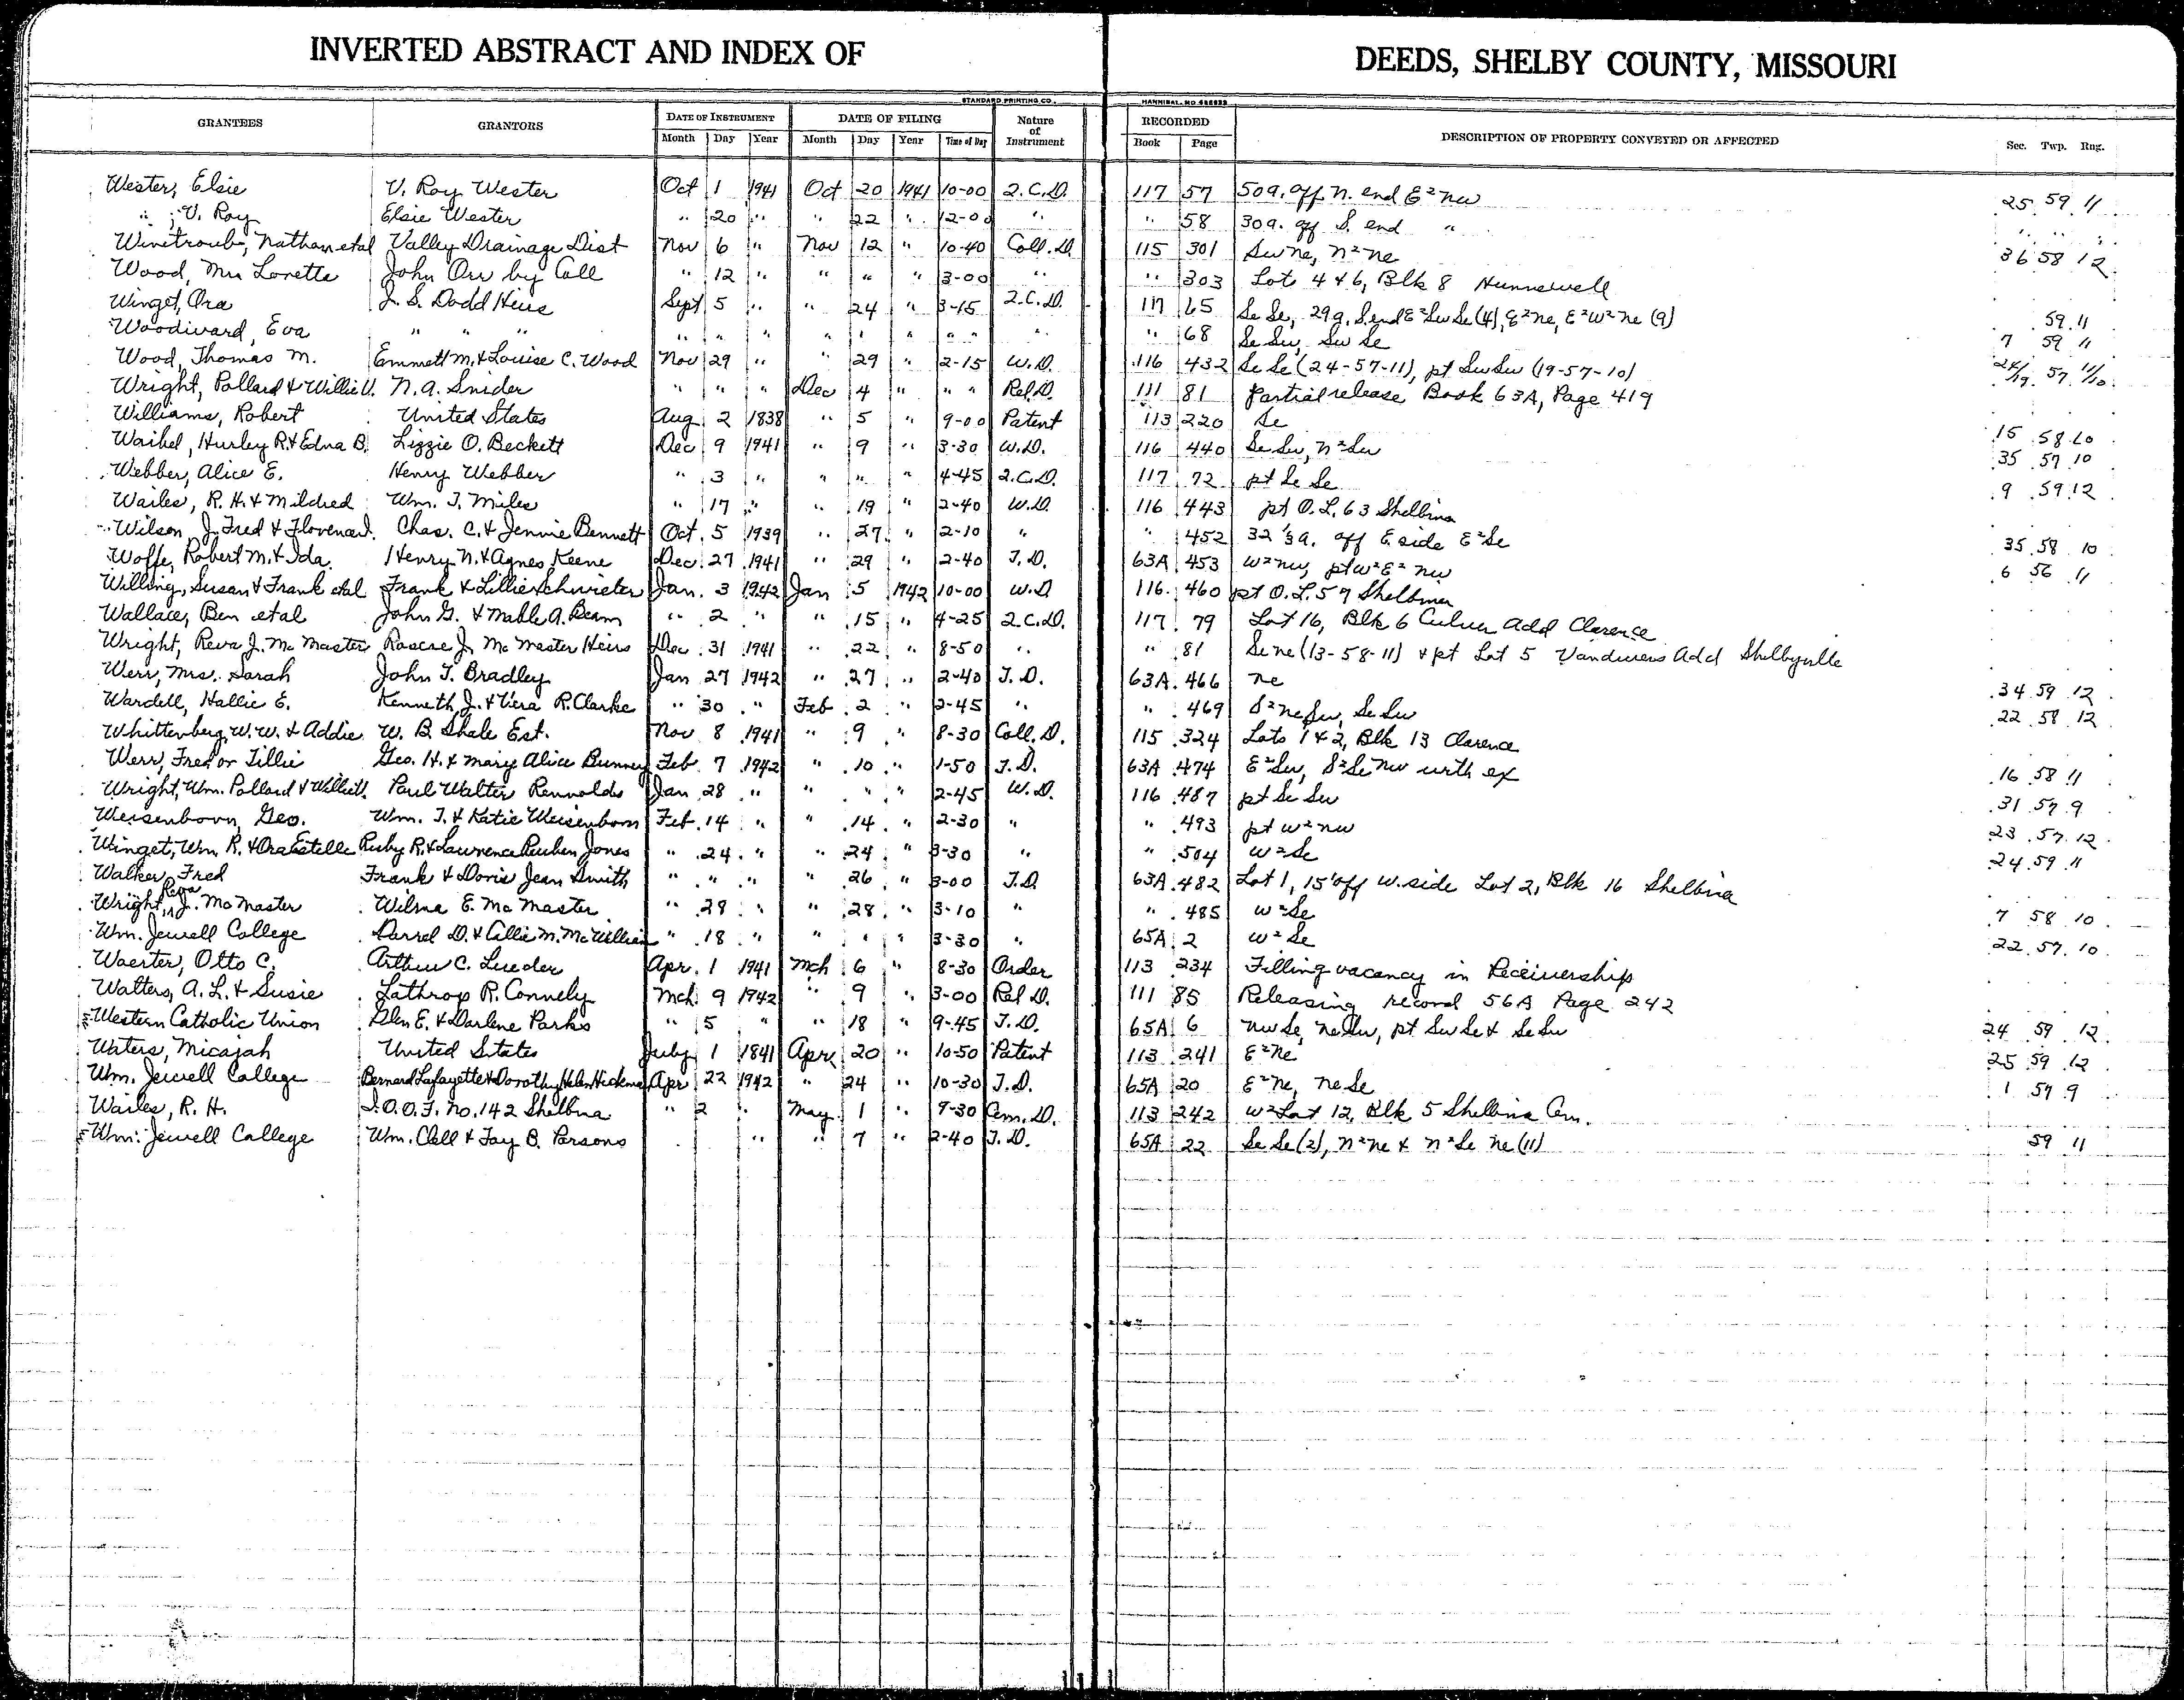 INVERTED ABSTRACT AND INDEX OF DEEDS, SHELBY COUNTY, MISSOURI
STANDARD PRINTING CO. HANNIBAL, MO
GRANTEES GRANTORS DATE OF INSTRUMENT DATE OF FILING Nature of Instrument RECORDED DESCRIPTION OF PROPERTY CONVEYED OR AFFECTED Sec. Twp. Rng.
Month Day Year Month Day Year Time of Day Book Page
Wester, Elsie V. Roy Wester Oct 1 1941 Oct 20 1941 10-00 Q.C.D. 117 57 50a. off N. end E²nw 25 59 11
" , V. Roy Elsie Wester " 20 " " 22 " 12-00 " " 58 30a. off S. end " " " "
Winetroub, Nathan etal Valley Drainage Dist Nov 6 " Nov 12 " 10-40 Coll. D. 115 301 Swne, n²ne 36 58 12
Wood, Mrs Loretta John Orr by Coll " 12 " " " " 3-00 " " 303 Lots 4 & 6, Blk 8 Hunnewell
Winget, Ora J. S. Dodd Heirs Sept 5 " " 24 " 3-15 Q.C.D. 117 65 Se Se, 29a. S. end E²Sw Se (4), E²ne, E²W²ne (9) 59 11
Woodward, Eva " " " " " " " " " " " " " 68 Se Sw, Sw Se 7 59 11
Wood, Thomas M. Emmett M. & Louise C. Wood Nov 29 " " 29 " 2-15 W.D. 116 432 Se Se (24-57-11), pt Sw Sw (19-57-10) 24/19 57 11/10
Wright, Pollard & Willie V. N. A. Snider " " " Dec 4 " " " Rel D. 111 81 Partial release Book 63A, Page 419
Williams, Robert United States Aug 2 1838 " 5 " 9-00 Patent 113 220 Se 15 58 10
Waibel, Hurley R. & Edna B. Lizzie O. Beckett Dec 9 1941 " 9 " 3-30 W.D. 116 440 Se Sw, n²Sw 35 57 10
Webber, Alice E. Henry Webber " 3 " " " " 4-45 Q.C.D. 117 72 pt Se Se 9 59 12
Wailes, R. H. & Mildred Wm. T. Miles " 17 " " 19 " 2-40 W.D. 116 443 pt O.L. 63 Shelbina
Wilson, J. Fred & Chas. C. & Jennie Bennett Oct. 5 1939 " 27 " 2-10 " " 452 32 1/3 a. off E. side E²Se 35 58 10
Wolfe, Robert M. & Ida Henry N. & Agnes Keene Dec 27 1941 " 29 " 2-40 T.D. 63A 453 w²nw, pt w²E²nw 6 56 11
Willing, Susan & Frank etal Frank & Lillie Schwieter Jan. 3 1942 Jan 5 1942 10-00 W.D 116 460 pt O.L. 57 Shelbina
Wallace, Ben etal John G. & Mable A. Beam " 2 " " 15 " 4-25 Q.C.D. 117 79 Lot 16, Blk 6 Culver Add Clarence
Wright, Reva J. McMaster Roscoe J. McMaster Heirs Dec 31 1941 " 22 " 8-50 " " 81 Se ne (13-58-11) & pt Lot 5 Vandivers Add Shelbyville
Werr, Mrs. Sarah John T. Bradley Jan 27 1942 " 27 " 2-40 T.D. 63A 466 ne 34 59 12
Wardell, Hallie E. Kenneth J. & Viera R. Clarke " 30 " Feb 2 " 2-45 " " 469 S²neSw, Se Sw 22 58 12
Whittenberg, W. W. & Addie W. B. Shale Est. Nov 8 1941 " 9 " 8-30 Coll. D. 115 324 Lots 1 & 2, Blk 13 Clarence
Werr, Fred or Tillie Geo. H. & Mary Alice Bunney Feb 7 1942 " 10 " 1-50 T.D. 63A 474 E²Sw, S²Se nw with ex 16 58 11
Wright, Wm. Pollard & Paul Walter Rennolds Jan 28 " " " " 2-45 W.D. 116 487 pt Se Sw 31 57 9
Weisenborn, Geo. Wm. T. & Katie Weisenborn Feb. 14 " " 14 " 2-30 " " 493 pt w²nw 23 57 12
Winget, Wm. R. & Ora Estelle Ruby R. & Lawrence Reuben Jones " 24 " " 24 " 3-30 " " 504 w²Se 24 59 11
Walker, Fred Frank & Doris Jean Smith " " " " 26 " 3-00 T.D. 63A 482 Lot 1, 15' off W. side Lot 2, Blk 16 Shelbina
Wright, Reva J. McMaster Wilma E. McMaster " 28 " " 28 " 3-10 " " 485 w²Se 7 58 10
Wm. Jewell College Darrel D. & Allie M. McWilliam " 18 " " " " 3-30 " 65A 2 w²Se 22 57 10
Waerter, Otto C. Arthur C. Lueder Apr. 1 1941 Mch 6 " 8-30 Order 113 234 Filling vacancy in Receivership
Walters, A. L. & Susie Lathrop R. Connely Mch 9 1942 " 9 " 3-00 Rel D. 111 85 Releasing record 56A Page 242
Western Catholic Union Glen E. & Darlene Parks " 5 " " 18 " 9-45 T.D. 65A 6 nw Se, ne Sw, pt Sw Se & Se Sw 24 59 12
Waters, Micajah United States July 1 1841 Apr. 20 " 10-50 Patent 113 241 E²ne 25 59 12
Wm. Jewell College Bernard Lafayette & Dorothy Helen Hickman Apr 22 1942 " 24 " 10-30 T.D. 65A 20 E²ne, ne Se 1 57 9
Wailes, R. H. I.O.O.F. No. 142 Shelbina " 2 " May 1 " 9-30 Cem. D. 113 242 w²Lot 12, Blk 5 Shelbina Cem.
Wm. Jewell College Wm. Clell & Fay B. Parsons " " 7 " 2-40 T.D. 65A 22 Se Se (2), n²ne & n²Se ne (11) 59 11